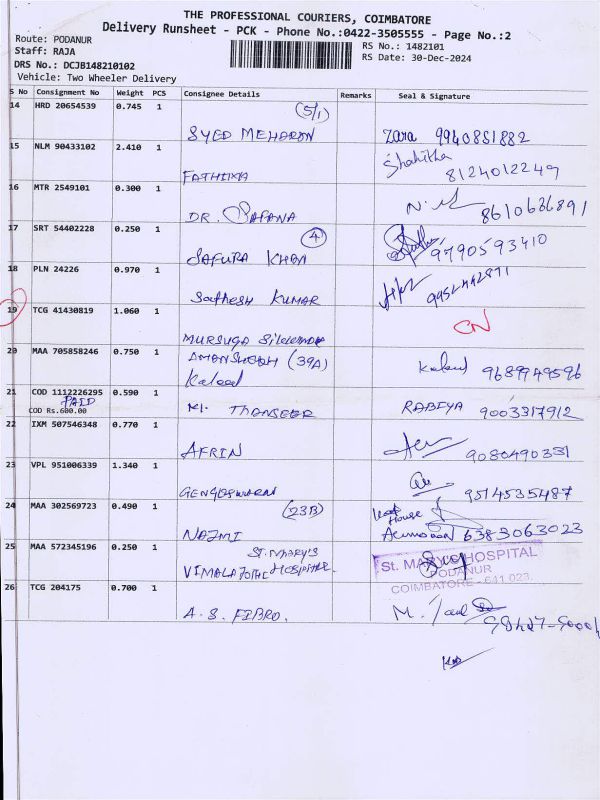 THE PROFESSIONAL COURIERS, COIMBATORE
Delivery Runsheet - PCK - Phone No.:0422-3505555 - Page No.:2
Route: PODANUR
Staff: RAJA
RS No.: 1482101
RS Date: 30-Dec-2024
DRS No.: DCJB148210102
Vehicle: Two Wheeler Delivery
S No Consignment No Weight PCS Consignee Details Remarks Seal & Signature
14 HRD 20654539 0.745 1 (5/1)
SYED MEHARON Zara 9940851882
15 NLM 90433102 2.410 1 Shahitha
FATHIMA 8124012249
16 MTR 2549101 0.300 1
DR. SAFANA 8610636891
17 SRT 54402228 0.250 1 (4)
SAFURA KHAN 9790593410
18 PLN 24226 0.970 1
Sathesh KUMAR
19 TCG 41430819 1.060 1 CN
MURSUGA
20 MAA 705858246 0.750 1 (39A)
Kaleel 9689949596
21 COD 1112226295 0.590 1
PAID
COD Rs.600.00
THANSEER RABIYA 9003317912
22 IXM 507546348 0.770 1
AFRIN 9080490331
23 VPL 951006339 1.340 1
9514535487
24 MAA 302569723 0.490 1 (23B) House
NAJMI 6383063023
25 MAA 572345196 0.250 1 ST. MARY'S
HOSPITAL
St. MARY'S HOSPITAL
PODANUR
COIMBATORE - 641 023.
26 TCG 204175 0.700 1
A.S. FIBRO.